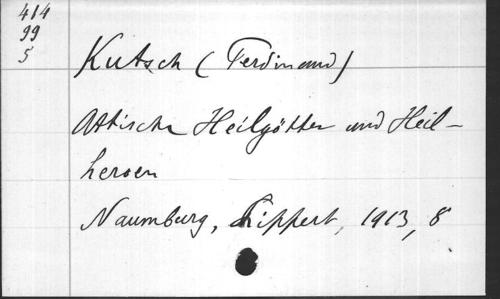 414
99
5
Kutsch (Ferdinand)
Attische Heilgötter und Heil-
heroen
Naumburg, Lippert, 1913, 8°